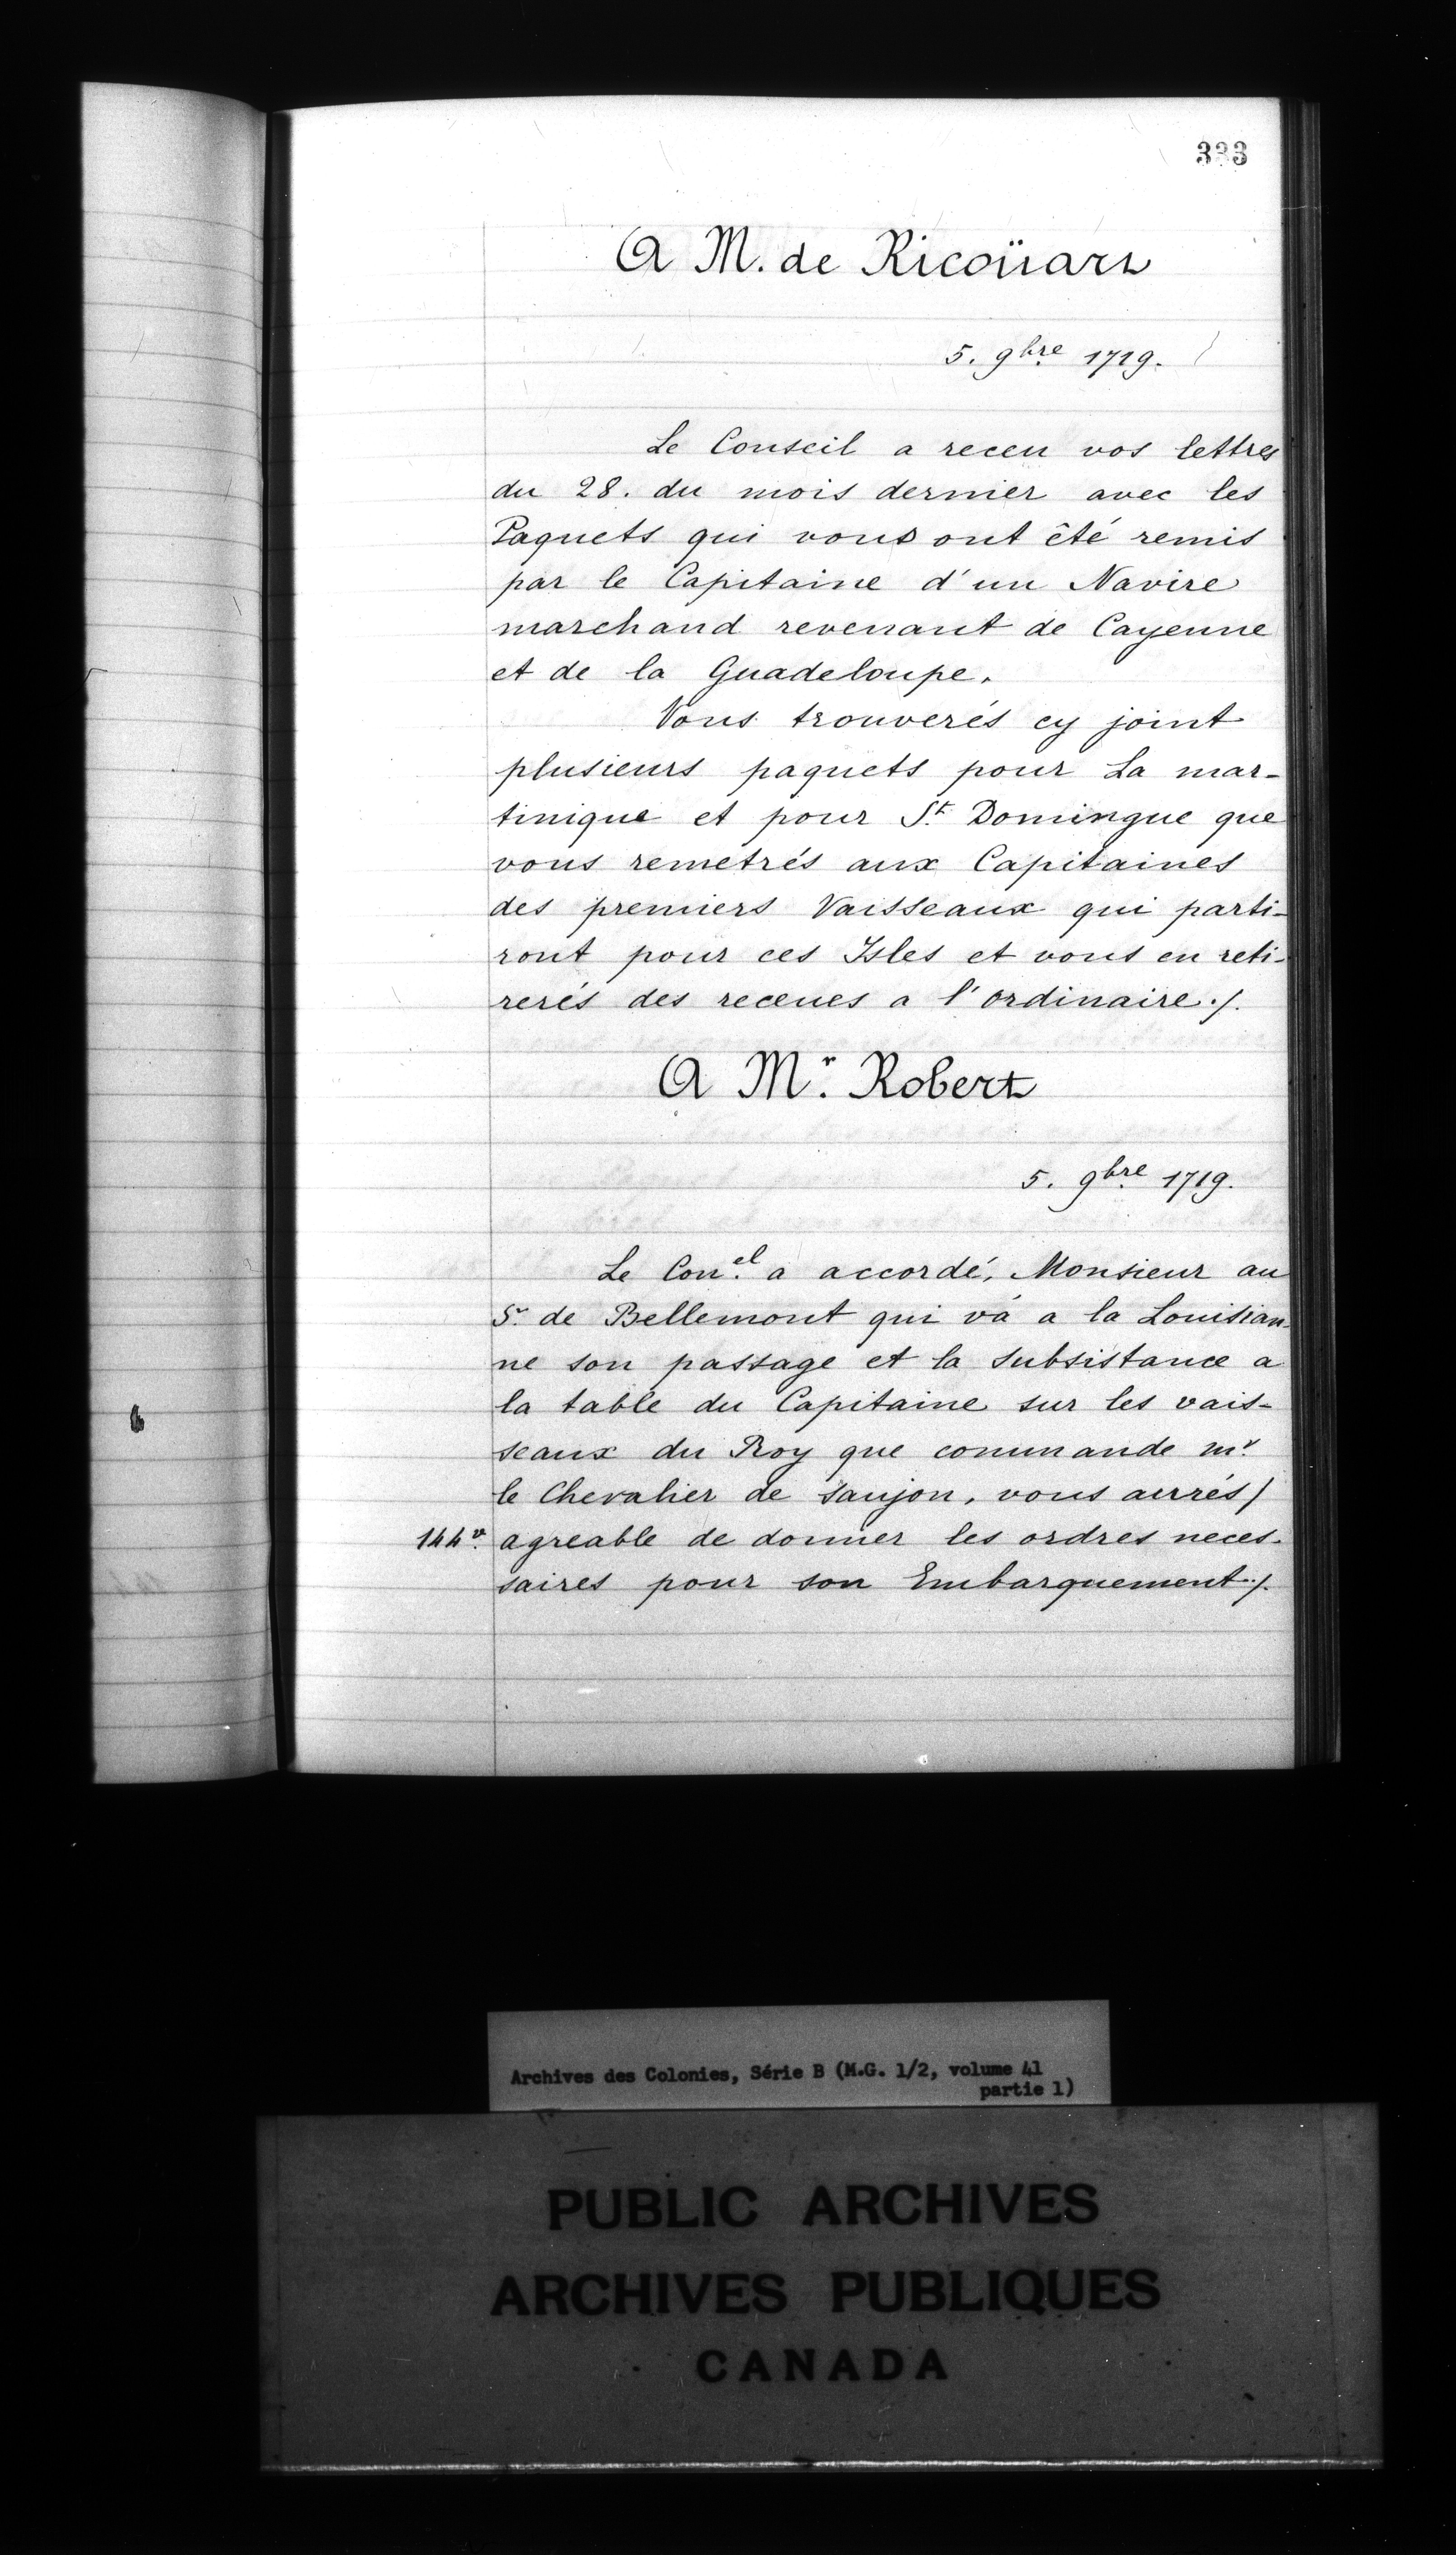 333
A M. de Ricoüart
5. 9bre 1719.
Le Conseil a receu vos lettres
du 28. du mois dernier avec les
Paquets qui vous ont êté remis
par le Capitaine d'un Navire
marchand revenant de Cayenne
et de la Guadeloupe.
Vous trouverés cy joint
plusieurs paquets pour La mar-
tinique et pour St. Domingue que
vous remetrés aux Capitaines
des premiers Vaisseaux qui parti-
ront pour ces Isles et vous en reti-
rerés des receues a l'ordinaire ./.
A Mr. Robert
5. 9bre 1719.
Le Con.el a accordé, Monsieur au
Sr. de Bellemont qui vá a la Louisian-
ne son passage et la subsistance a
la table du Capitaine sur les vais-
seaux du Roy que commande mr.
le Chevalier de Saujon, vous aurés /
144v. agreable de donner les ordres neces-
saires pour son Embarquement ./.
Archives des Colonies, Série B (M.G. 1/2, volume 41
partie 1)
PUBLIC ARCHIVES
ARCHIVES PUBLIQUES
CANADA